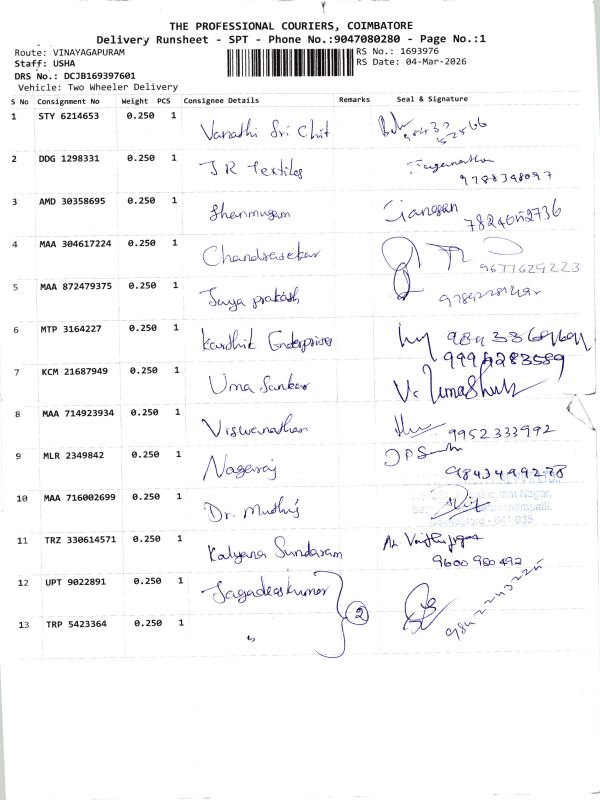 THE PROFESSIONAL COURIERS, COIMBATORE
Delivery Runsheet - SPT - Phone No.:9047080280 - Page No.:1
Route: VINAYAGAPURAM RS No.: 1693976
Staff: USHA RS Date: 04-Mar-2026
DRS No.: DCJB169397601
Vehicle: Two Wheeler Delivery
S No Consignment No Weight PCS Consignee Details Remarks Seal & Signature
1 STY 6214653 0.250 1 Vanathi Sri Chit
2 DDG 1298331 0.250 1 J R Textiles Jaganathan
9788398097
3 AMD 30358695 0.250 1 Shanmugam Ganesan
4 MAA 304617224 0.250 1 Chandrasekar 9677629223
5 MAA 872479375 0.250 1 Jaya prakash
6 MTP 3164227 0.250 1 Karthik Enterprises
7 KCM 21687949 0.250 1 Uma Sankar 9994283589
V. UmaShankar
8 MAA 714923934 0.250 1 Viswanathan 9952333992
9 MLR 2349842 0.250 1 Nagaraj
10 MAA 716002699 0.250 1 Dr. Muthu's
Coimbatore - 641 035
11 TRZ 330614571 0.250 1 Kalyana Sundaram
9600 980 492
12 UPT 9022891 0.250 1 Jagadeeskumar
2
13 TRP 5423364 0.250 1 "